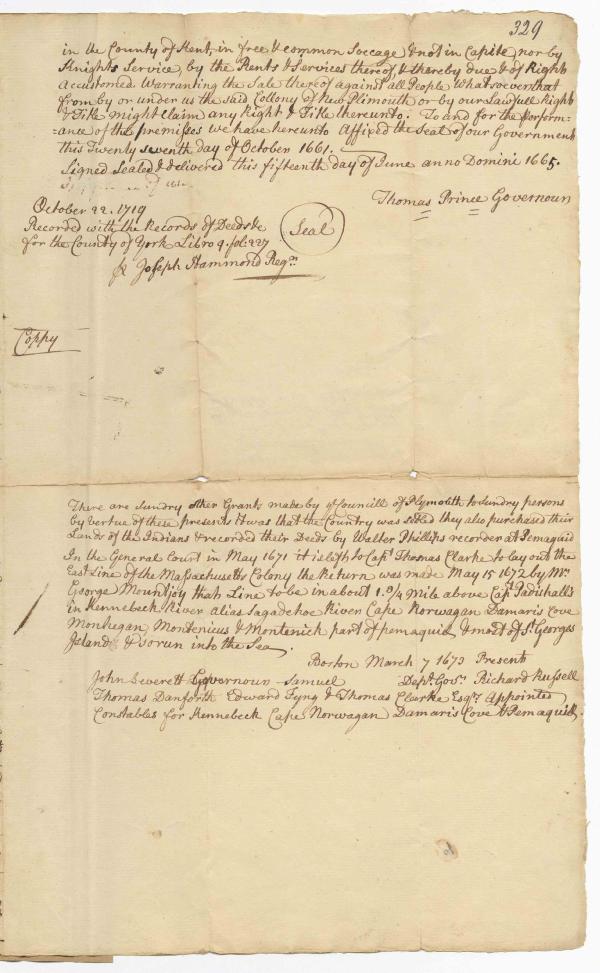 329
in the County of Kent, in free & common Soccage & not in Capite, nor by
Knights Service, by the Rents & Services thereof, & thereby due & of Right
accustomed. Warranting the Sale thereof against all People whatsoever that
from by or under us the said Collony of New Plimouth or by our Lawfull Right
& Title might Claim any Right & Title thereunto. To and for the Perform-
=ance of the premisses we have hereunto affixed the Seal of our Government
this Twenty seventh day of October 1661.
Signed Sealed & delivered this fifteenth day of June anno Domini 1665.
Thomas Prince Governour
October 22. 1719
Recorded with the Records of Deeds &c
for the County of York Libro 9. fol: 227
Seal
pr Joseph Hammond Regr
Coppy
There are Sundry other Grants made by ye Councill of Plymouth to Sundry persons
by vertue of these presents it was that the Country was setled they also purchased their
Lands of the Indians & recorded their Deeds by Walter Phillips recorder at Pemaquid
In the General Court in May 1671 it is left to Capt Thomas Clarke to lay out the
East Line of the Massachusetts Colony the Return was made May 15 1672 by Mr
George Mountjoy that Line to be in about 1.3/4 Mile above Capt Padishall's
in Kennebeck River alias Sagadehoc River Cape Norwagan Damaris Cove
Monhegan Montenicus & Montenick part of pemaquid & most of St Georges
Island & so run into the Sea
Boston March 7 1673 Present
John Leverett Governour Samuel Depty Govr Richard Russell
Thomas Danforth Edward Tyng & Thomas Clarke Esqr Appointed
Constables for Kennebeck Cape Norwagan Damaris Cove & Pemaquid.